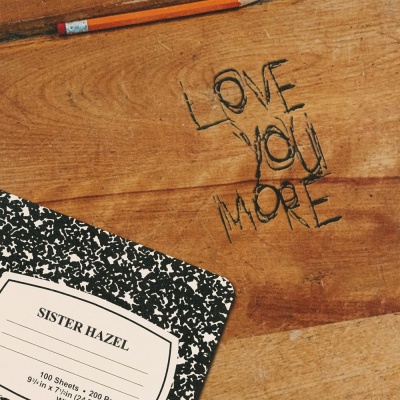 LOVE
YOU
MORE
SISTER HAZEL
100 Sheets • 200 P
9¾ in x 7½ in (24